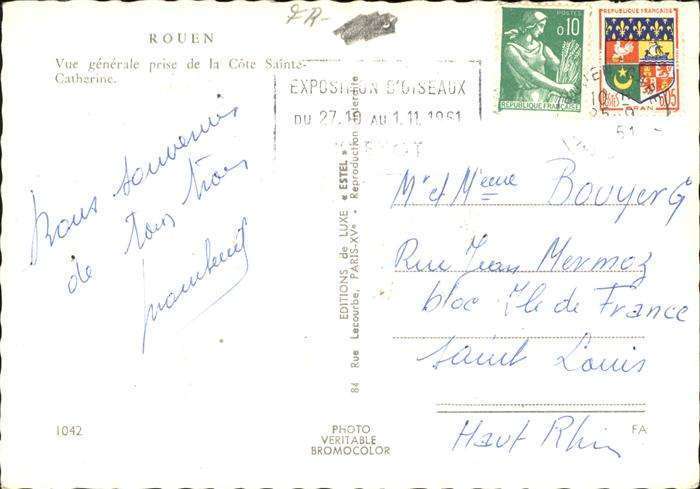 ROUEN
Vue générale prise de la Côte Sainte-
Catherine.
FR-
EXPOSITION D'OISEAUX
DU 27.10 AU 1.11.1961
POSTES
0,10
REPUBLIQUE FRANÇAISE
REPUBLIQUE FRANÇAISE
0,05
ORAN
Bons souvenirs
de tous trois
EDITIONS de LUXE « ESTEL » • Reproduction interdite
84 Rue Lecourbe, PARIS-XVe
Mr et Mme Bouyer G
Rue Jean Mermoz
bloc Ile de France
Saint Louis
Haut Rhin
1042
PHOTO
VERITABLE
BROMOCOLOR
FA